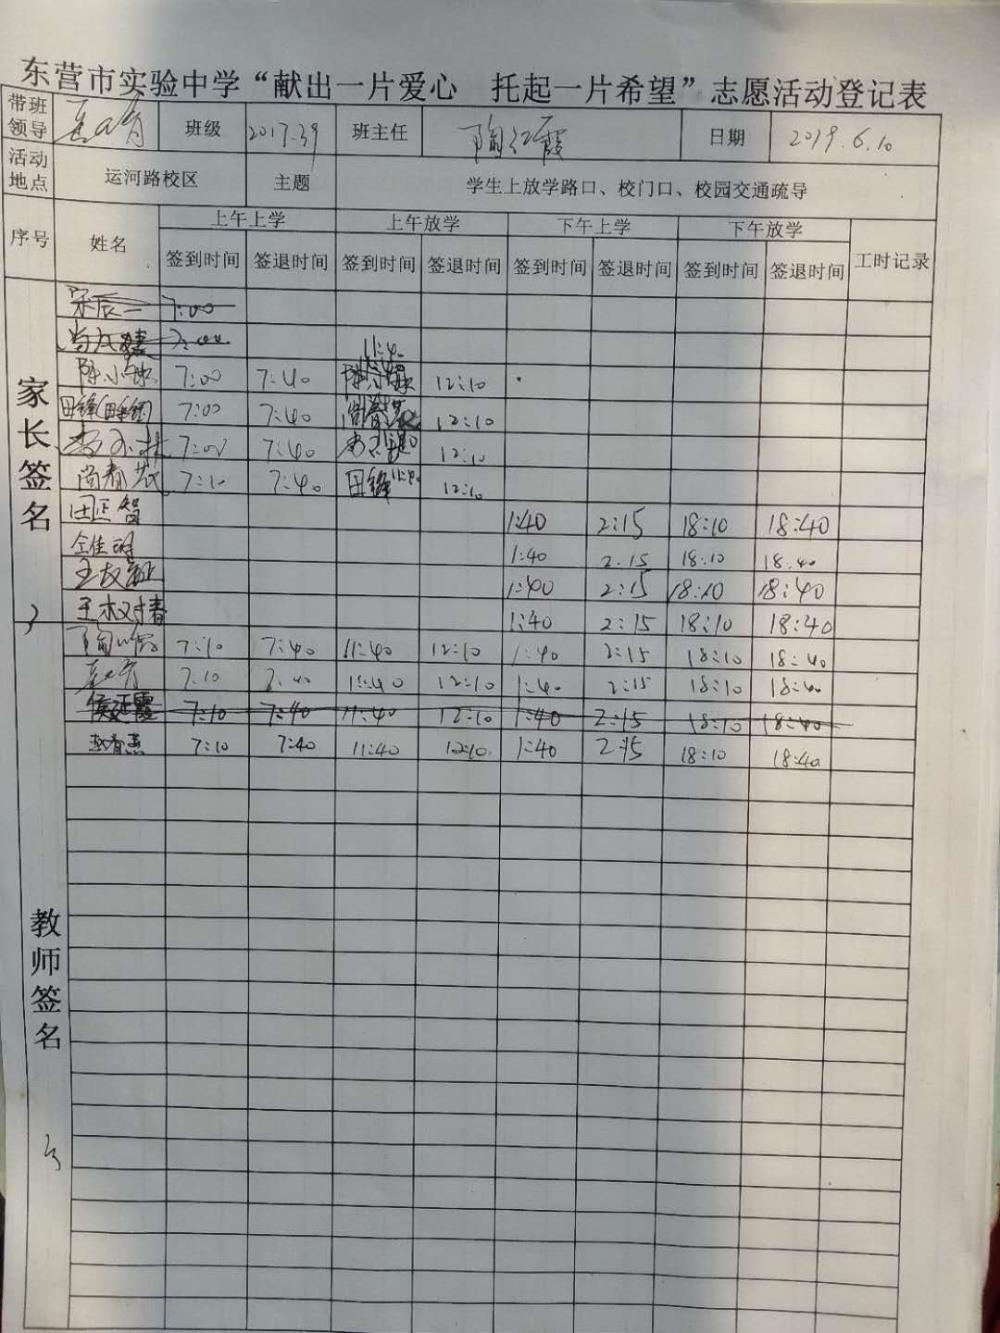 东营市实验中学“献出一片爱心 托起一片希望”志愿活动登记表
带班领导 班级 2017.39 班主任 陶红霞 日期 2019.6.10
活动地点 运河路校区 主题 学生上放学路口、校门口、校园交通疏导
序号 姓名 上午上学 上午放学 下午上学 下午放学 工时记录
签到时间 签退时间 签到时间 签退时间 签到时间 签退时间 签到时间 签退时间
家长签名
宋辰一 7:00
7:00
陈小敏 7:00 7:40 11:40 陈小敏 12:10
田锋 7:00 7:40 尚春花 12:10
7:00 7:40 12:10
尚春花 7:10 7:40 田锋 11:40 12:10
田正智 1:40 2:15 18:10 18:40
1:40 2:15 18:10 18:40
1:40 2:15 18:10 18:40
王树春 1:40 2:15 18:10 18:40
教师签名
陶红霞 7:10 7:40 11:40 12:10 1:40 2:15 18:10 18:40
7:10 7:40 11:40 12:10 1:40 2:15 18:10 18:40
侯延霞 7:10 7:40 11:40 12:10 1:40 2:15 18:10 18:40
赵春燕 7:10 7:40 11:40 12:10 1:40 2:15 18:10 18:40